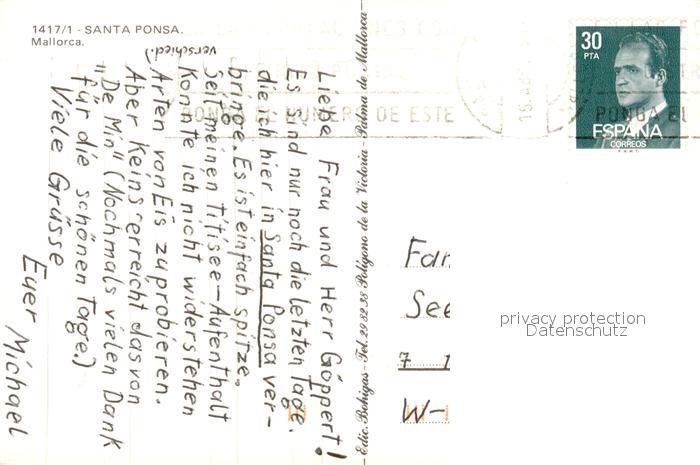 1417/1 - SANTA PONSA.
Mallorca.
Liebe Frau und Herr Göppert!
Es sind nur noch die letzten Tage,
die ich hier in Santa Ponsa ver-
bringe. Es ist einfach spitze.
Seit meinen Titisee-Aufenthalt
konnte ich nicht widerstehen
(verschied.)
Arten von Eis zu probieren.
Aber keins erreicht das von
"De Min" (Nochmals vielen Dank
für die schönen Tage.)
Viele Grüsse
Euer Michael
Edic. Bohigas - Tel. 29 32 35 Polígono de la Victoria - Palma de Mallorca
PONGA EL NUMERO DE ESTE
PONGA EL
30
PTA
ESPAÑA
CORREOS
F.N.M.T.
Fam
See
7 1
W-
privacy protection
Datenschutz